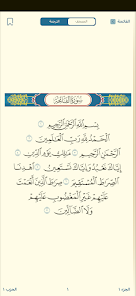 الفاتحة
المصحف
الترجمة
سورة الفاتحة
بسم الله الرحمن الرحيم ١
الحمد لله رب العلمين ٢
الرحمن الرحيم ٣ ملك يوم الدين ٤
إياك نعبد وإياك نستعين ٥ اهدنا
الصرط المستقيم ٦ صرط الذين أنعمت
عليهم غير المغضوب عليهم
ولا الضالين ٧
الجزء ١
١
الحزب ١